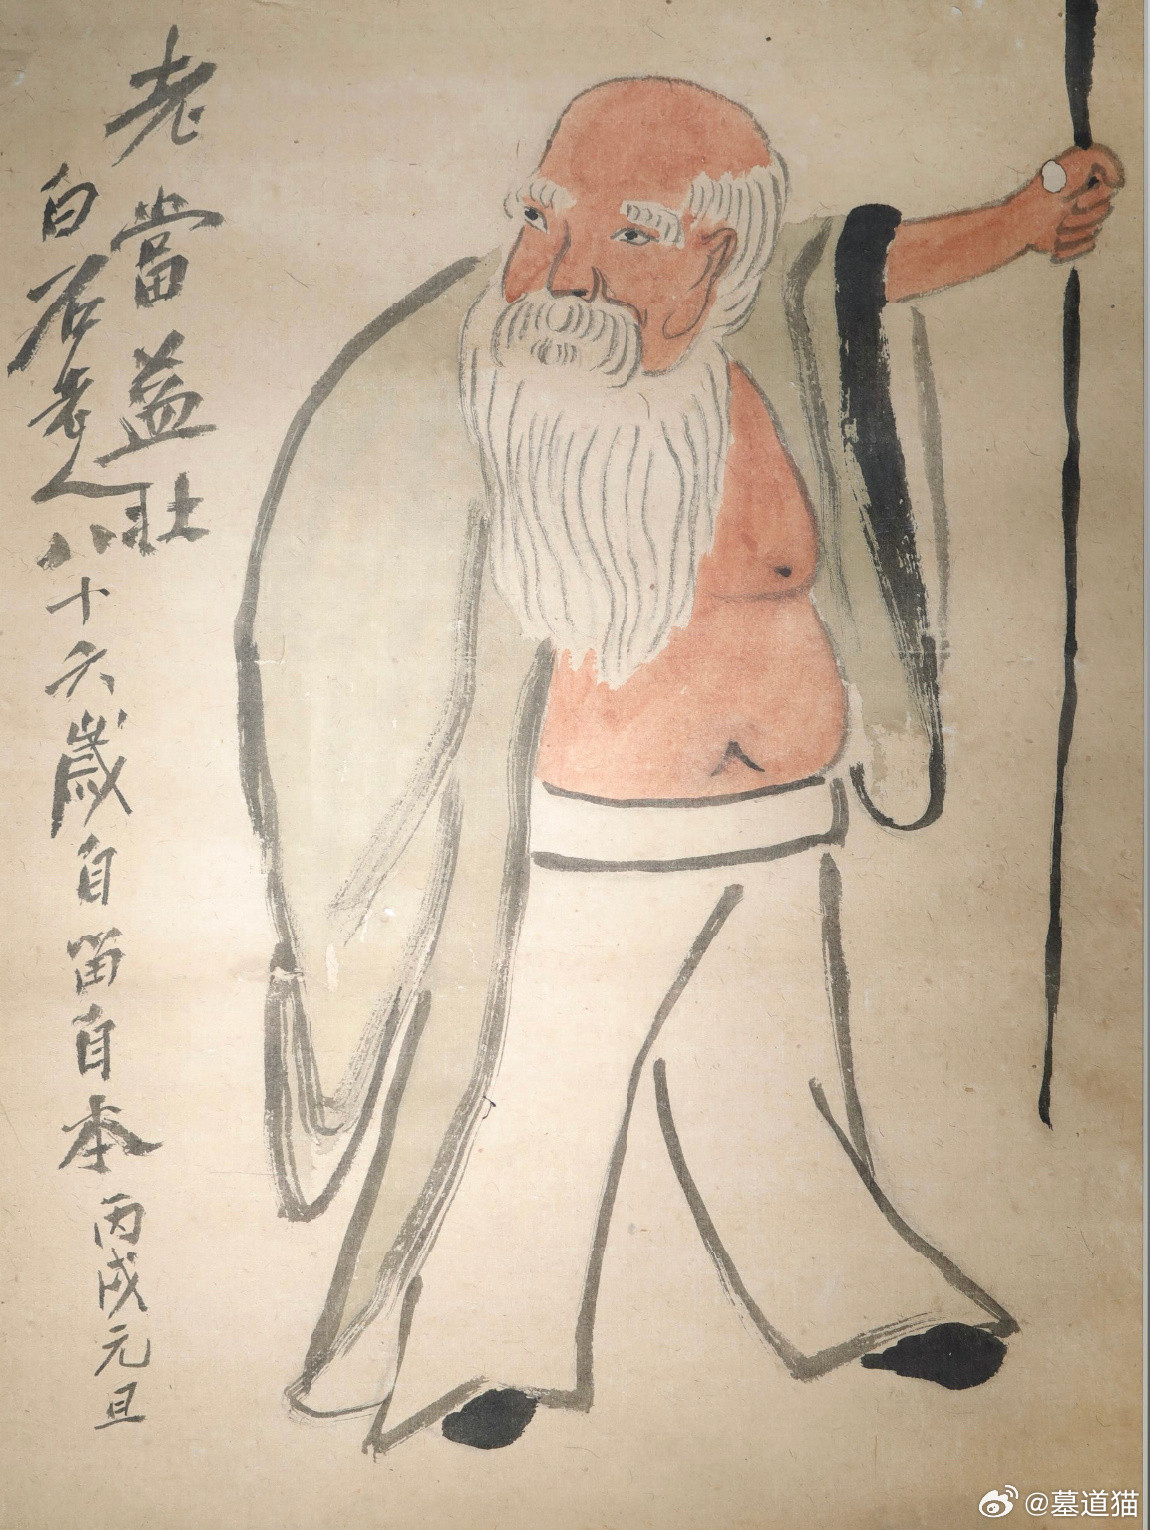 老當益壯
白石老人八十六歲自畱自本丙戌元旦
@墓道猫